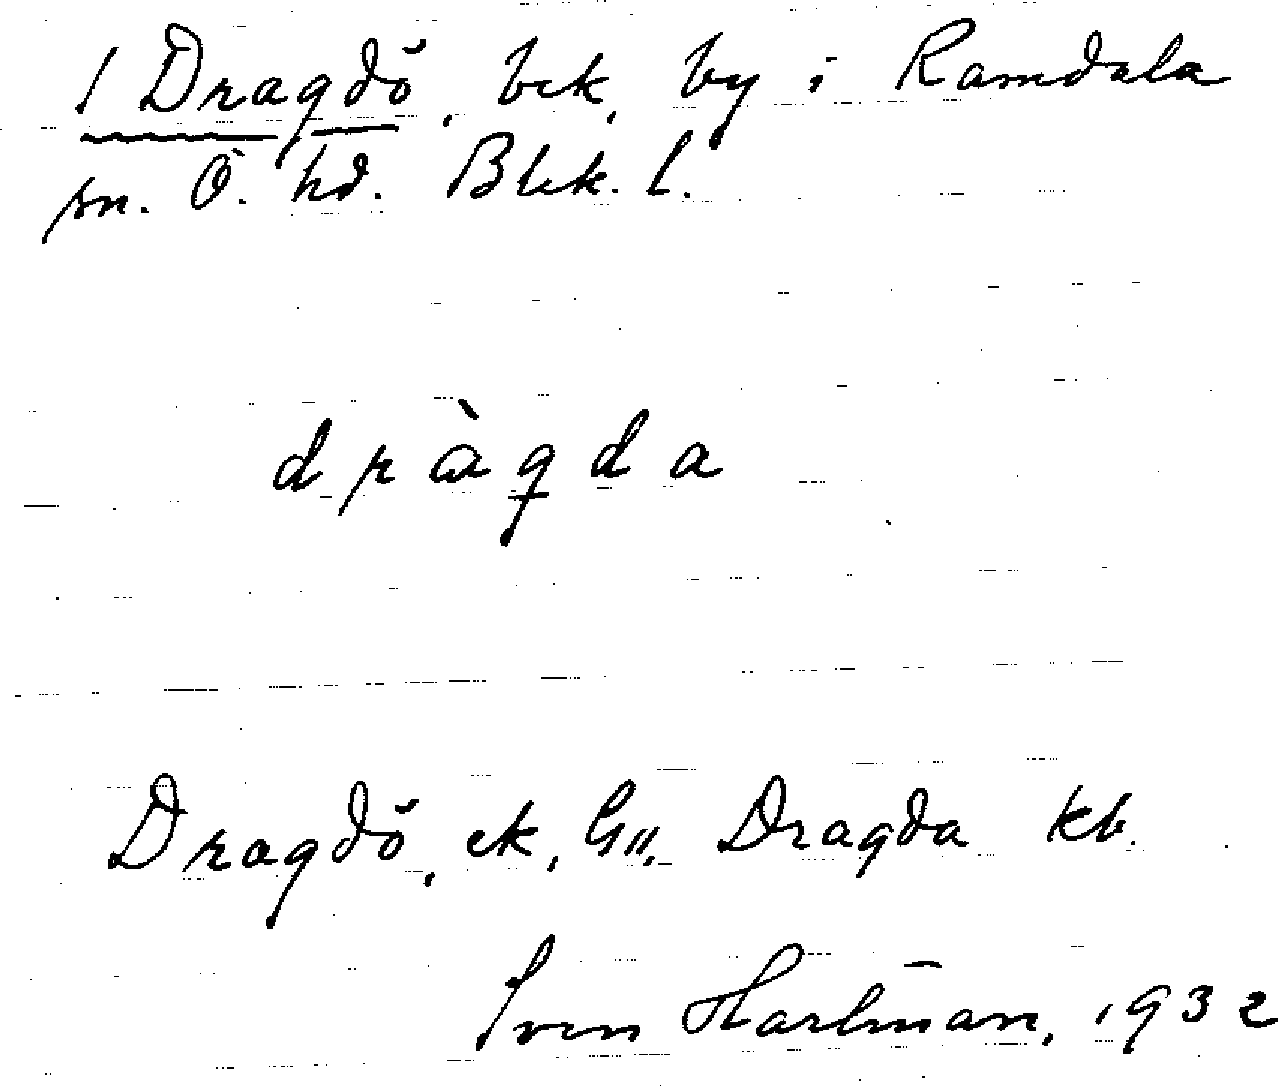 1 Dragdö, bek, by i Ramdala
sn. Ö. hd. Blek. l.
dràgda
Dragdö, ek, G11, Dragda kb.
Sven Hartman, 1932